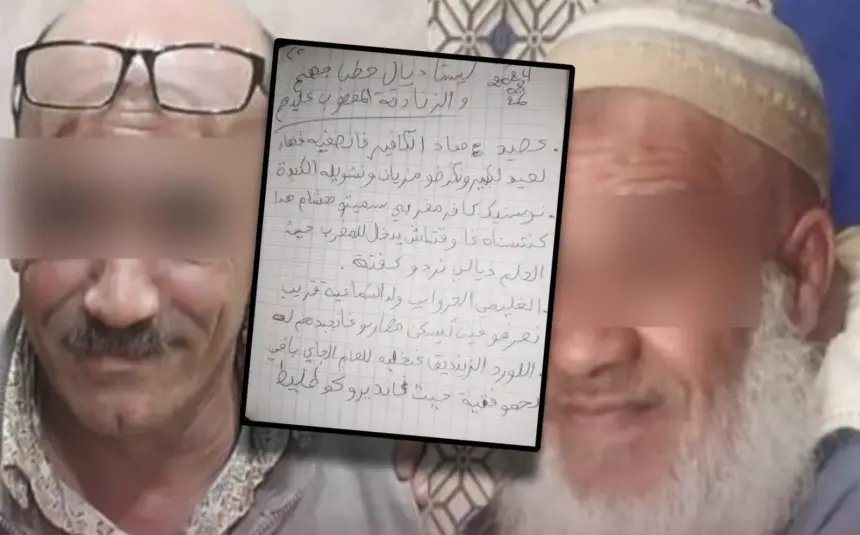 ليستا ديال حطب جهنم
والزنادقة المغضوب عليهم
2024
08
26
عصيد الكافر غانصفيه فنهار
لعيد لكبير ونكرضو مزيان ونشويله الكبدة
نوستيك كافر مغربي سميتو هشام هدا
كنتسناه غا وقتاش يدخل للمغرب حيث
الحلم ديالي نردو كفتة.
الغليمي الحرواني ولد السماعية قريب
نعرهو فين كيسكن
اللورد الزنديق مخليه للعام الجاي باقي
لحمو فتية حيث غانديرو كوطليط